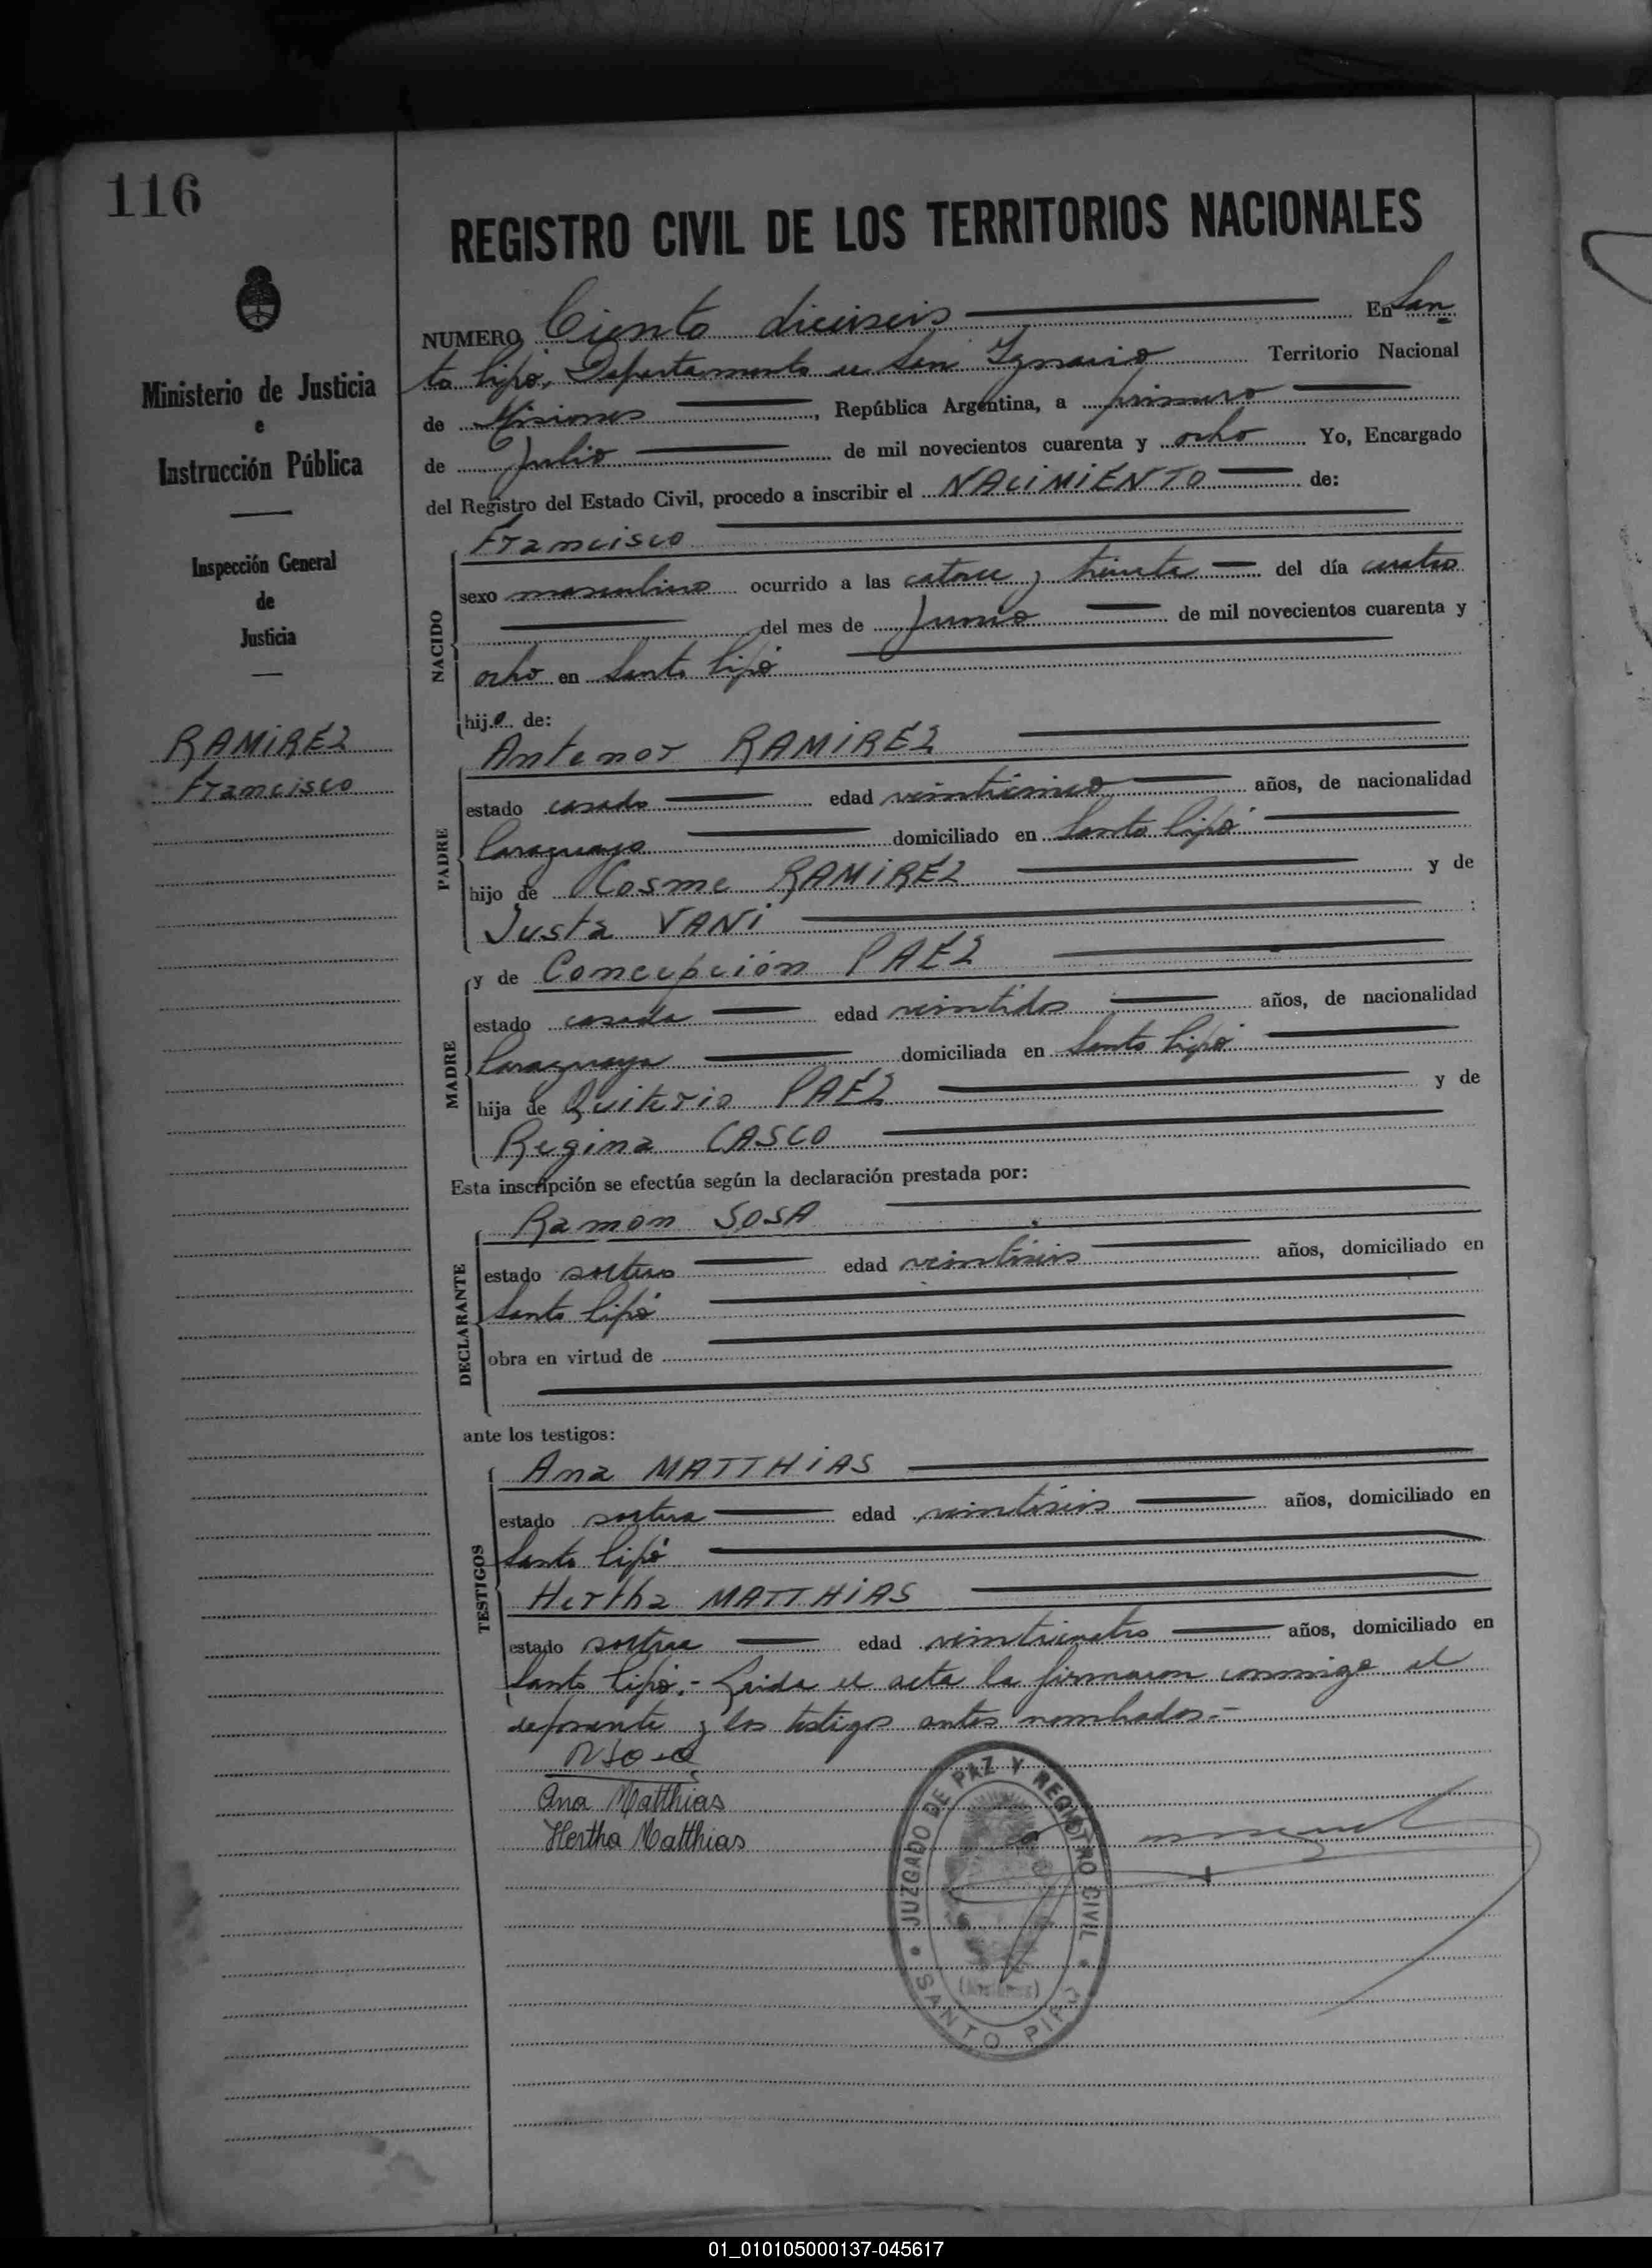 116
REGISTRO CIVIL DE LOS TERRITORIOS NACIONALES
Ministerio de Justicia
e
Instrucción Pública
Inspección General
de
Justicia
RAMIREZ
Francisco
NUMERO Ciento dieciseis En San
to Pipó, Departamento de San Ignacio Territorio Nacional
de Misiones, República Argentina, a primero
de Julio de mil novecientos cuarenta y ocho Yo, Encargado
del Registro del Estado Civil, procedo a inscribir el NACIMIENTO de:
NACIDO
Francisco
sexo masculino ocurrido a las catorce y treinta del día cuatro
del mes de Junio de mil novecientos cuarenta y
ocho en Santo Pipó
hijo de:
PADRE
Antenor RAMIREZ
estado casado edad veinticinco años, de nacionalidad
Paraguayo domiciliado en Santo Pipó
hijo de Cosme RAMIREZ y de
Justa VANI
MADRE
y de Concepción PAEZ
estado casada edad veintidos años, de nacionalidad
Paraguaya domiciliada en Santo Pipó
hija de Quiterio PAEZ y de
Regina CASCO
Esta inscripción se efectúa según la declaración prestada por:
DECLARANTE
Ramon SOSA
estado soltero edad veintiseis años, domiciliado en
Santo Pipó
obra en virtud de
ante los testigos:
TESTIGOS
Ana MATTHIAS
estado soltera edad veintiseis años, domiciliado en
Santo Pipó
Hertha MATTHIAS
estado soltera edad veinticuatro años, domiciliado en
Santo Pipó.- Leida el acta la firmaron conmigo el
deponente y los testigos antes nombrados.-
Ana Matthias
Hertha Matthias
JUZGADO DE PAZ Y REGISTRO CIVIL
SANTO PIPÓ
01_010105000137-045617